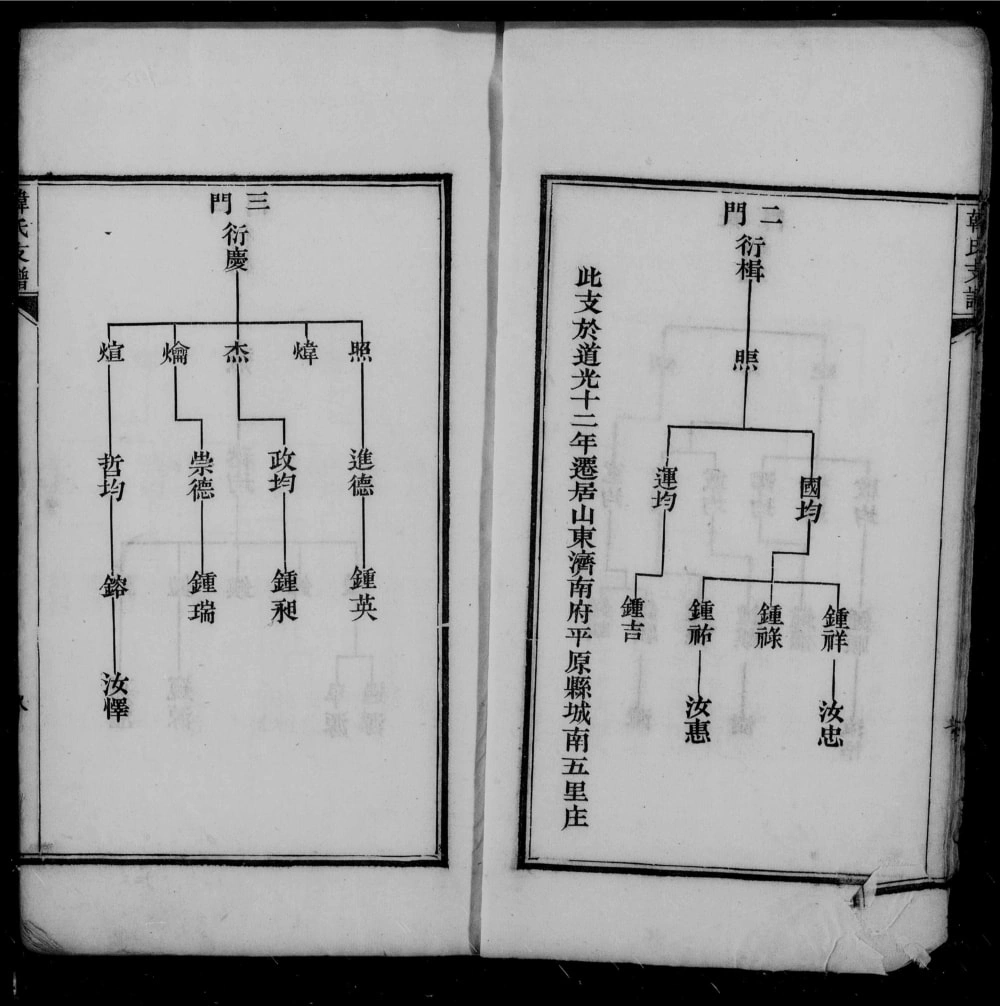 韓氏支譜
二門
衍楫
熈
國均
運均
鍾祥
鍾祿
鍾祐
鍾吉
汝忠
汝惠
此支於道光十二年遷居山東濟南府平原縣城南五里庄
三門
衍慶
照
煒
杰
爚
煊
進德
政均
崇德
哲均
鍾英
鍾昶
鍾瑞
鎔
汝懌
韓氏支譜